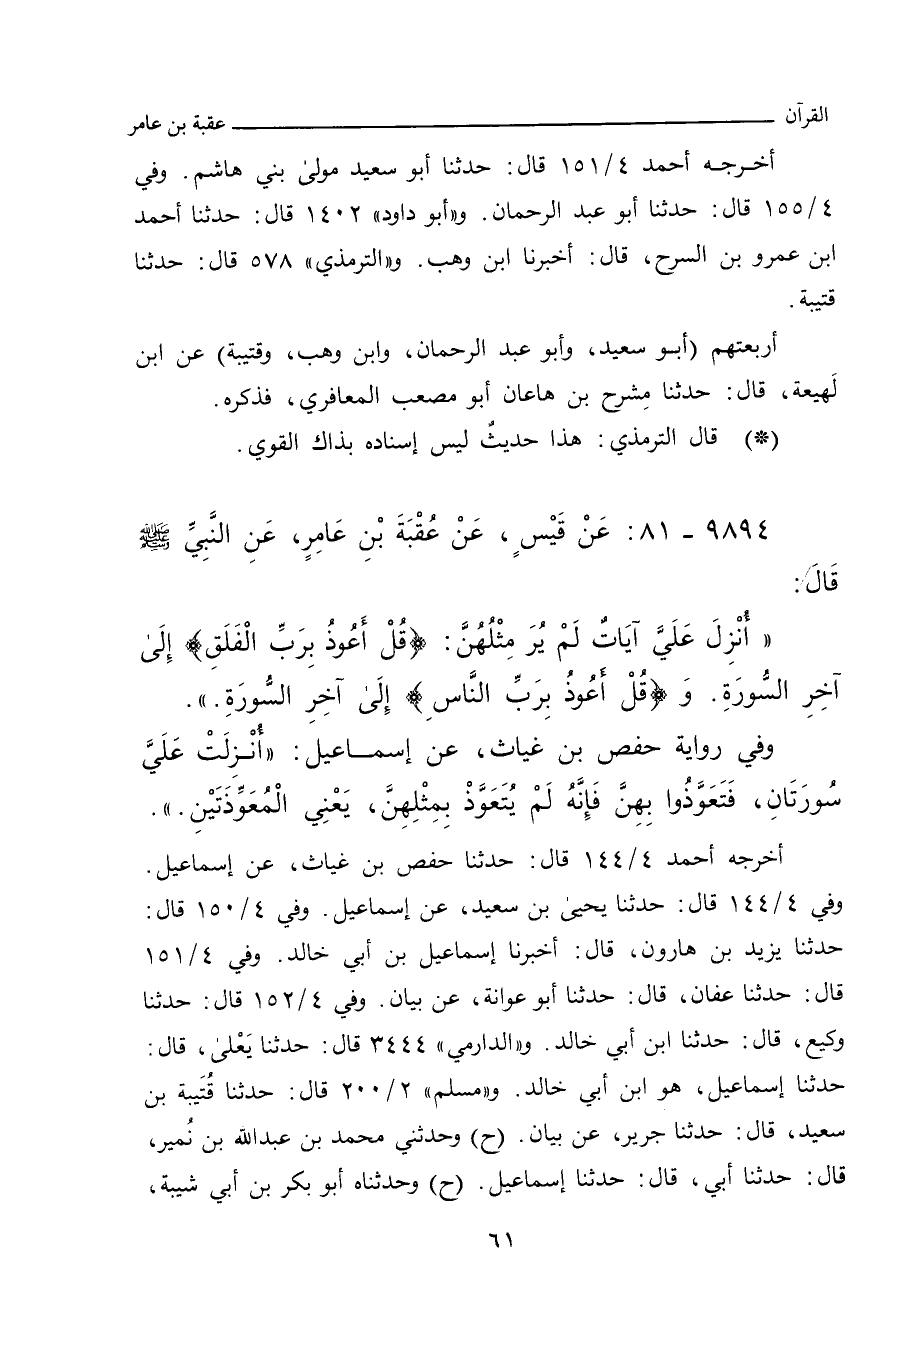 القرآن ــــــــ عقبة بن عامر
أخرجه أحمد ٤/ ١٥١ قال: حدثنا أبو سعيد مولىٰ بني هاشم. وفي
٤/ ١٥٥ قال: حدثنا أبو عبد الرحمان. و«أبو داود» ١٤٠٢ قال: حدثنا أحمد
ابن عمرو بن السرح، قال: أخبرنا ابن وهب. و«الترمذي» ٥٧٨ قال: حدثنا
قتيبة.
أربعتهم (أبو سعيد، وأبو عبد الرحمان، وابن وهب، وقتيبة) عن ابن
لَهيعة، قال: حدثنا مِشرح بن هاعان أبو مصعب المعافري، فذكره.
(*) قال الترمذي: هذا حديثٌ ليس إسناده بذاك القوي.
٩٨٩٤ - ٨١: عَنْ قَيْسٍ، عَنْ عُقْبَةَ بْنِ عَامِرٍ، عَنِ النَّبِيِّ ﷺ
قَالَ:
« أُنْزِلَ عَلَيَّ آيَاتٌ لَمْ يُرَ مِثْلُهُنَّ: ﴿قُلْ أَعُوذُ بِرَبِّ الْفَلَقِ﴾ إِلَىٰ
آخِرِ السُّورَةِ. وَ ﴿قُلْ أَعُوذُ بِرَبِّ النَّاسِ﴾ إِلَىٰ آخِرِ السُّورَةِ.».
وفي رواية حفص بن غياث، عن إسماعيل: «أُنْزِلَتْ عَلَيَّ
سُورَتَانِ، فَتَعَوَّذُوا بِهِنَّ فَإِنَّهُ لَمْ يُتَعَوَّذْ بِمِثْلِهِنَّ، يَعْنِي الْمُعَوِّذَتَيْنِ.».
أخرجه أحمد ٤/ ١٤٤ قال: حدثنا حفص بن غياث، عن إسماعيل.
وفي ٤/ ١٤٤ قال: حدثنا يحيىٰ بن سعيد، عن إسماعيل. وفي ٤/ ١٥٠ قال:
حدثنا يزيد بن هارون، قال: أخبرنا إسماعيل بن أبي خالد. وفي ٤/ ١٥١
قال: حدثنا عفان، قال: حدثنا أبو عوانة، عن بيان. وفي ٤/ ١٥٢ قال: حدثنا
وكيع، قال: حدثنا ابن أبي خالد. و«الدارمي» ٣٤٤٤ قال: حدثنا يَعْلىٰ، قال:
حدثنا إسماعيل، هو ابن أبي خالد. و«مسلم» ٢/ ٢٠٠ قال: حدثنا قُتَيبة بن
سعيد، قال: حدثنا جرير، عن بيان. (ح) وحدثني محمد بن عبدالله بن نُمير،
قال: حدثنا أبي، قال: حدثنا إسماعيل. (ح) وحدثناه أبو بكر بن أبي شيبة،
٦١